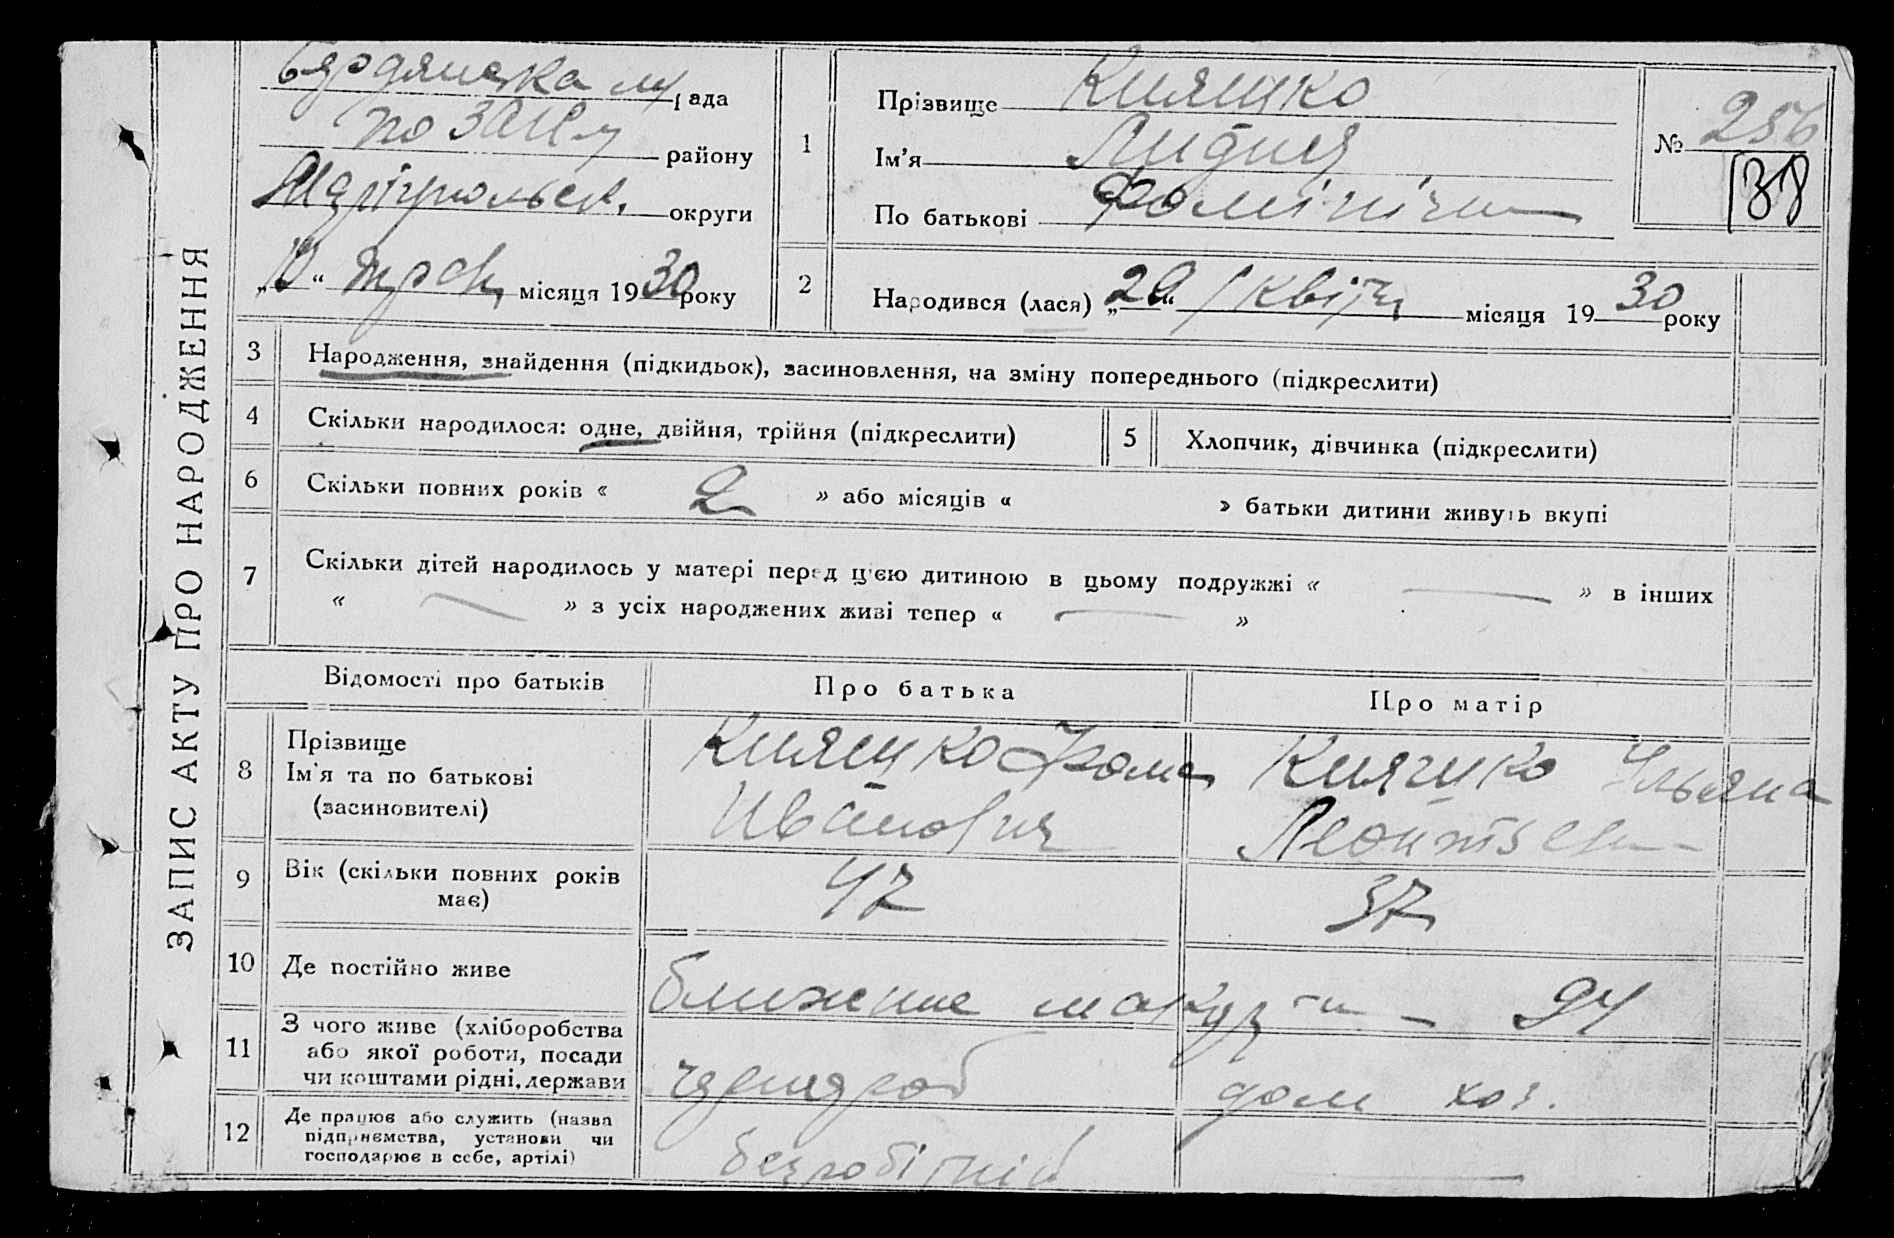 ЗАПИС АКТУ ПРО НАРОДЖЕННЯ
Бердянська м/рада
по ЗАГСу району
Маріупольськ. округи
„10“ трав. місяця 1930 року
1
Прізвище Кияшко
Ім'я Лидия
По батькові Фомінічна
№ 256
138
2
Народився (лася) „20“ квітн місяця 1930 року
3 Народження, знайдення (підкидьок), засиновлення, на зміну попереднього (підкреслити)
4 Скільки народилося: одне, двійня, трійня (підкреслити)
5 Хлопчик, дівчинка (підкреслити)
6 Скільки повних років « 2 » або місяців « » батьки дитини живуть вкупі
7 Скільки дітей народилось у матері перед цією дитиною в цьому подружжі « — » в інших
« — » з усіх народжених живі тепер « — »
Відомості про батьків
Про батька
Про матір
8 Прізвище
Ім'я та по батькові
(засиновителі)
Кияшко Фома
Иванович
Кияшко Ульяна
Леонтьевн
9 Вік (скільки повних років
має)
47
37
10 Де постійно живе
ближние 94
11 З чого живе (хліборобства
або якої роботи, посади
чи коштами рідні, держави
чернороб
дом хоз.
12 Де працює або служить (назва
підприємства, установи чи
господарює в себе, артілі)
безробітний
—